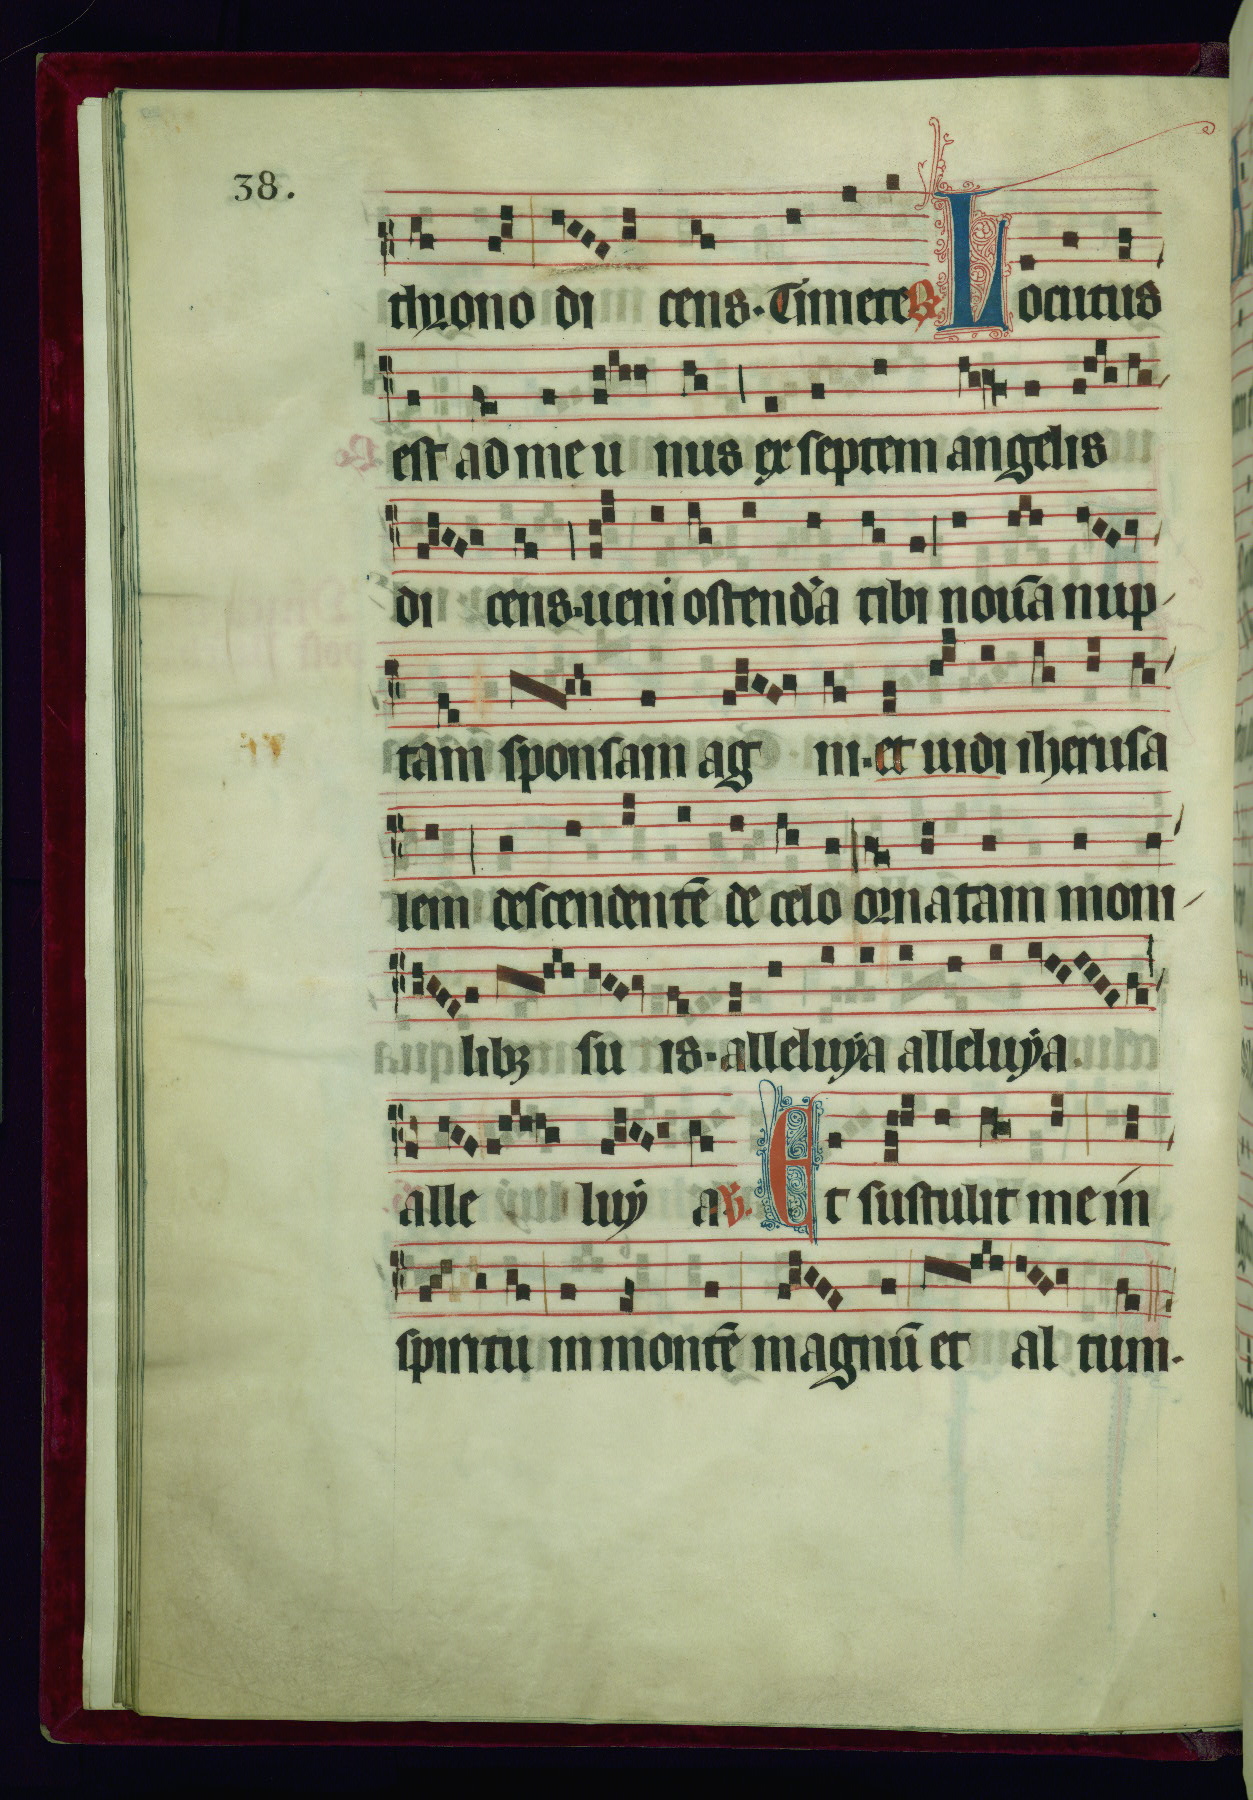 38.
throno di cens. Timete ℟ Locutus
est ad me u nus ex septem angelis
di cens. ueni ostendā tibi nouā nup
tam sponsam ag ni. et uidi iherusa
lem descendentē de celo ornatam moni
libꝫ su is. alleluÿa alleluÿa.
alle luÿ a. ℣. Et sustulit me in
spiritu in montē magnū et al tum.